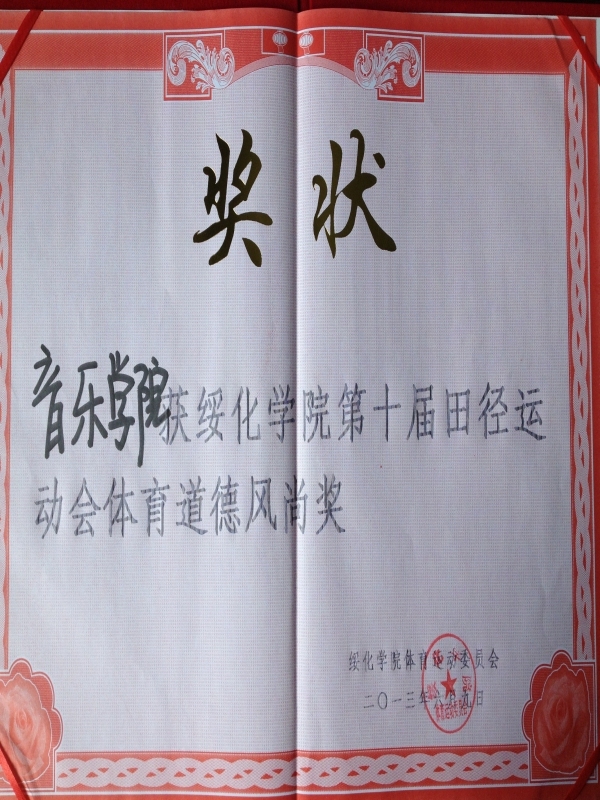 奖状
音乐学院获绥化学院第十届田径运
动会体育道德风尚奖
绥化学院体育运动委员会
二〇一三年 月九日